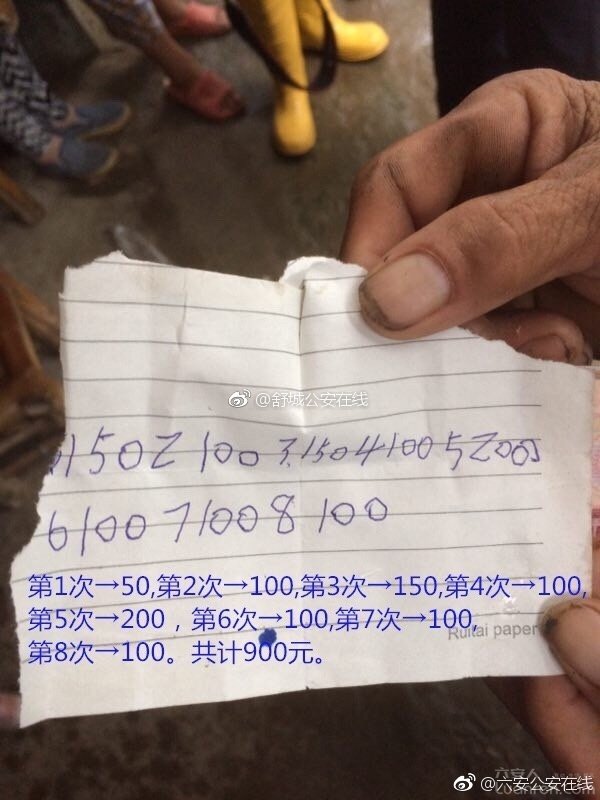 @舒城公安在线
1502 100 3.150 4100 5200
6100 7100 8 100
第1次→50,第2次→100,第3次→150,第4次→100,
第5次→200，第6次→100,第7次→100,
Ruitai paper
第8次→100。共计900元。
@六安公安在线